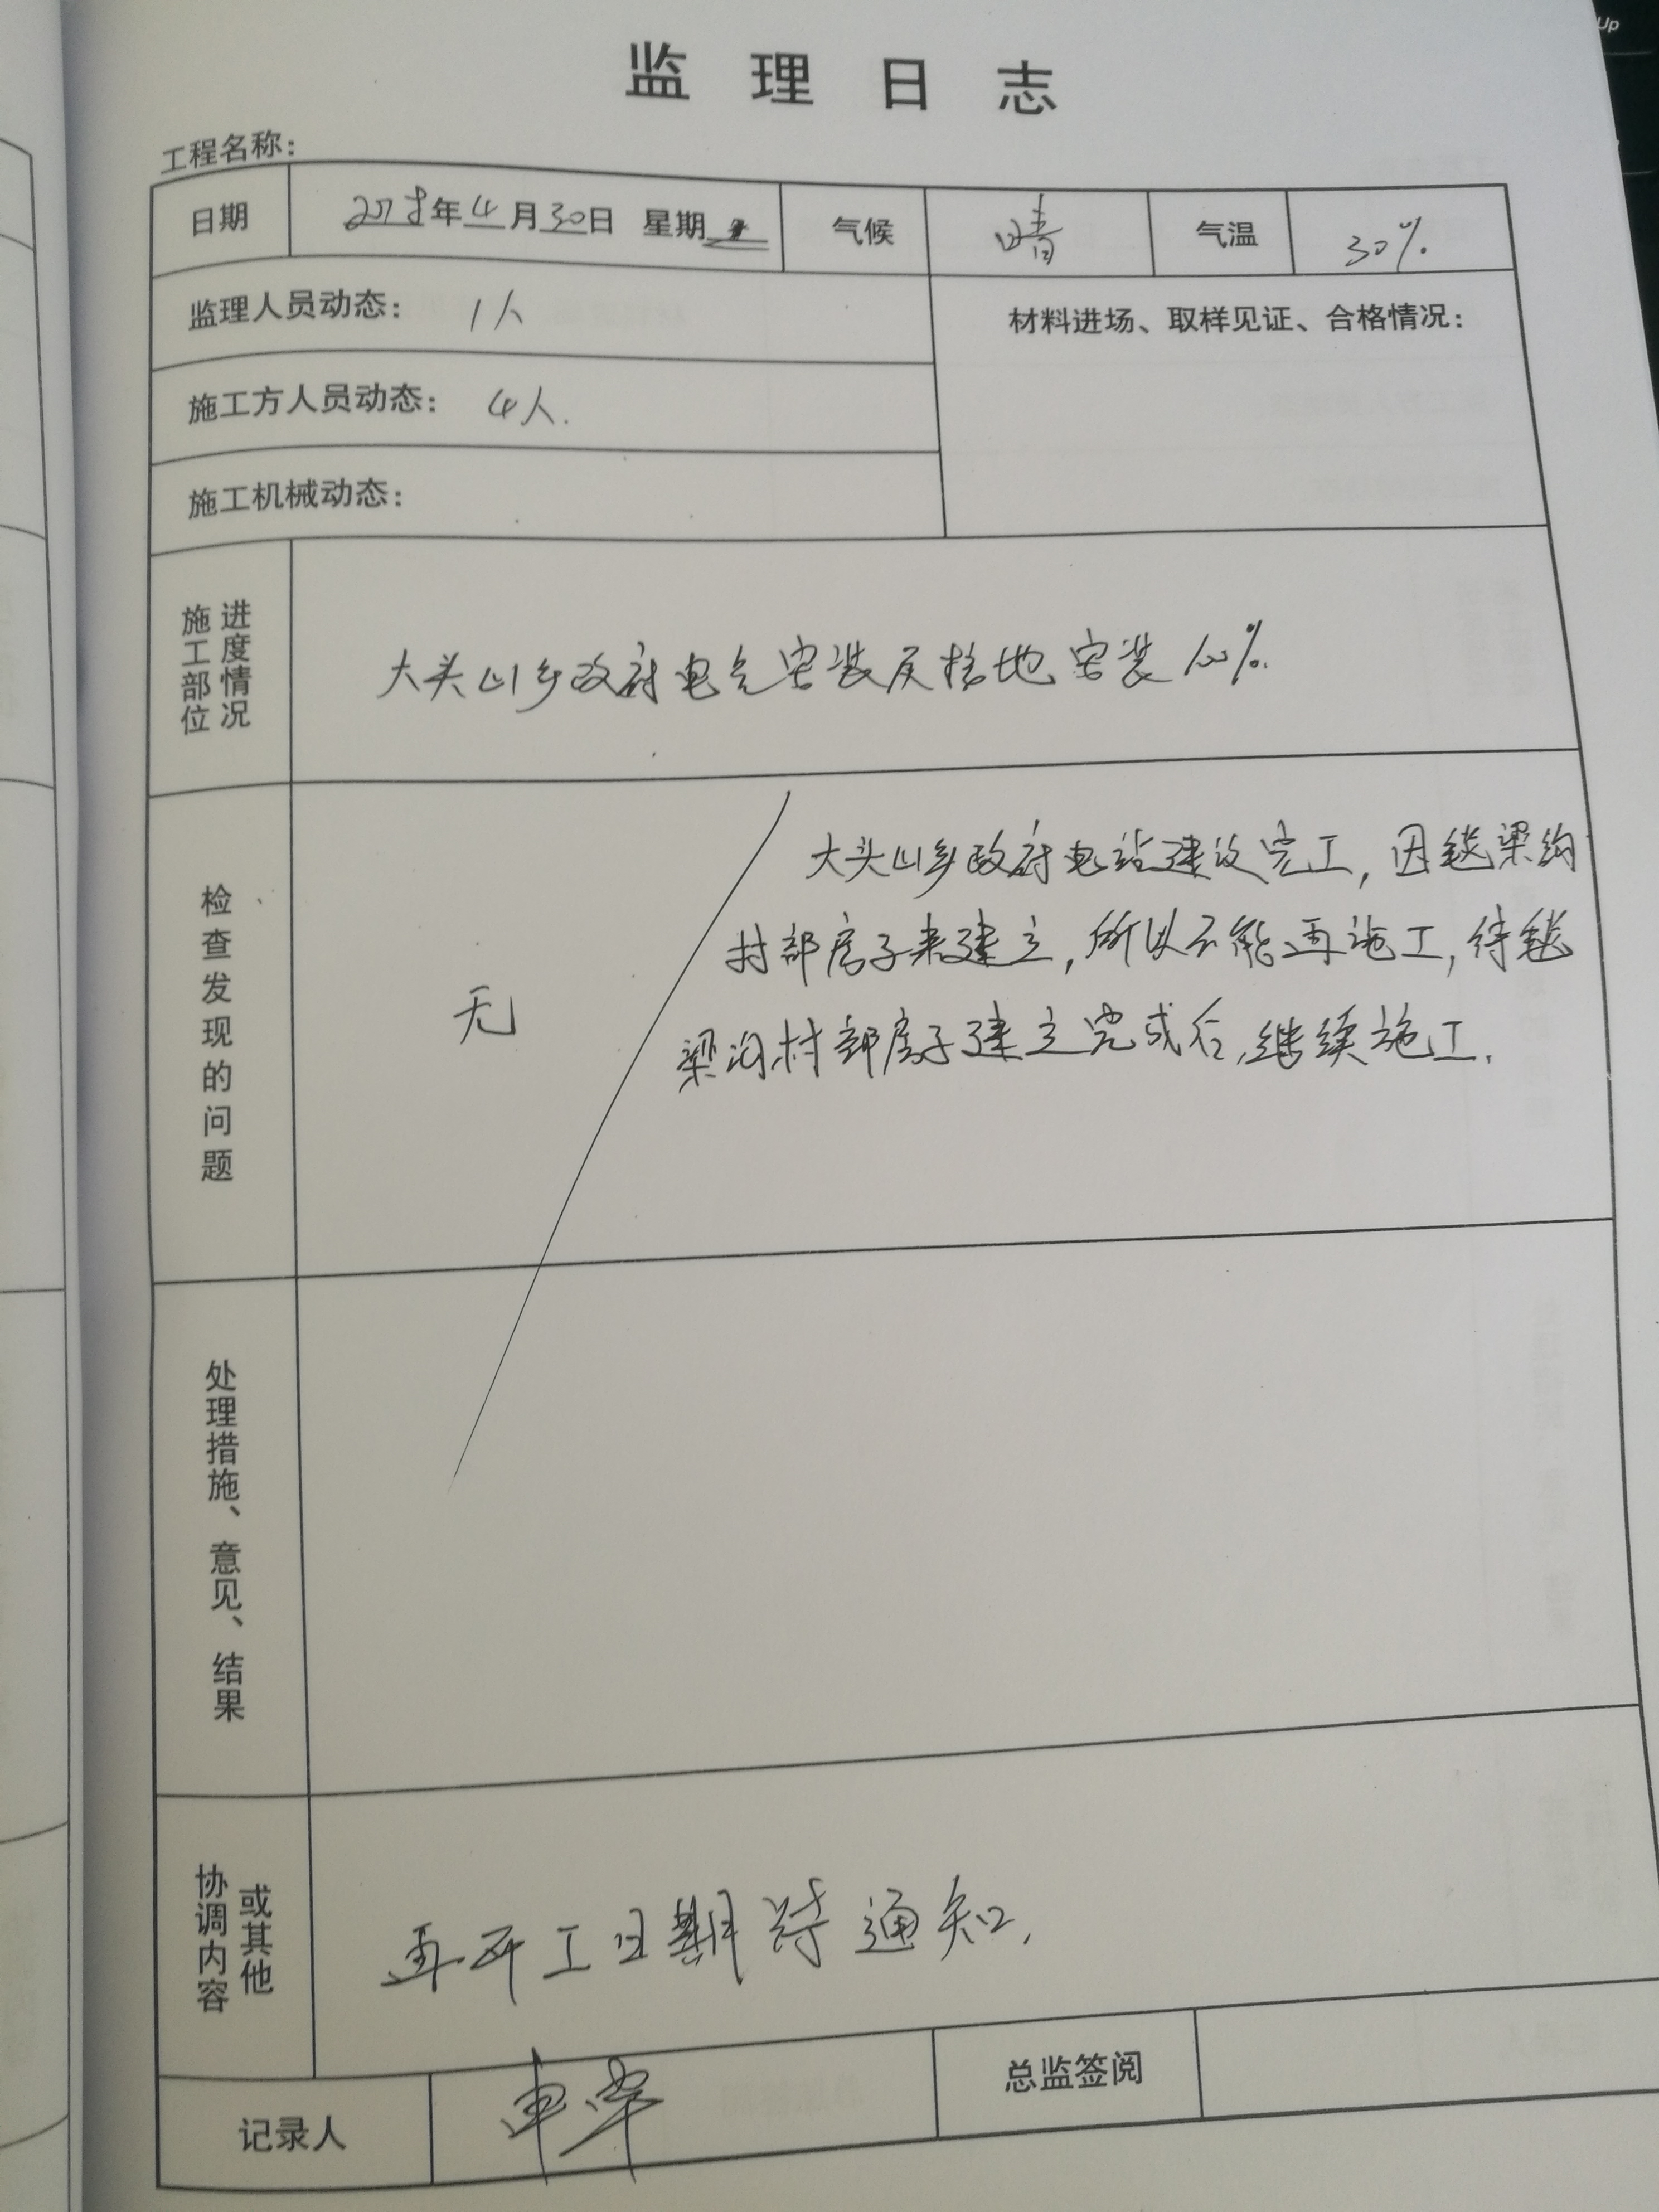 Up
监理日志
工程名称：
日期 2018年4月30日 星期 气候 晴 气温 30%
监理人员动态： 1人
材料进场、取样见证、合格情况：
施工方人员动态： 4人.
施工机械动态：
施工部位
进度情况
大头山乡政府电气安装及接地安装100%.
检查发现的问题
无
大头山乡政府电站建设完工,因毯梁沟
村部房子未建立,所以不能再施工,待毯
梁沟村部房子建立完成后,继续施工.
处理措施、意见、结果
协调内容
或其他
再开工日期待通知.
记录人
总监签阅